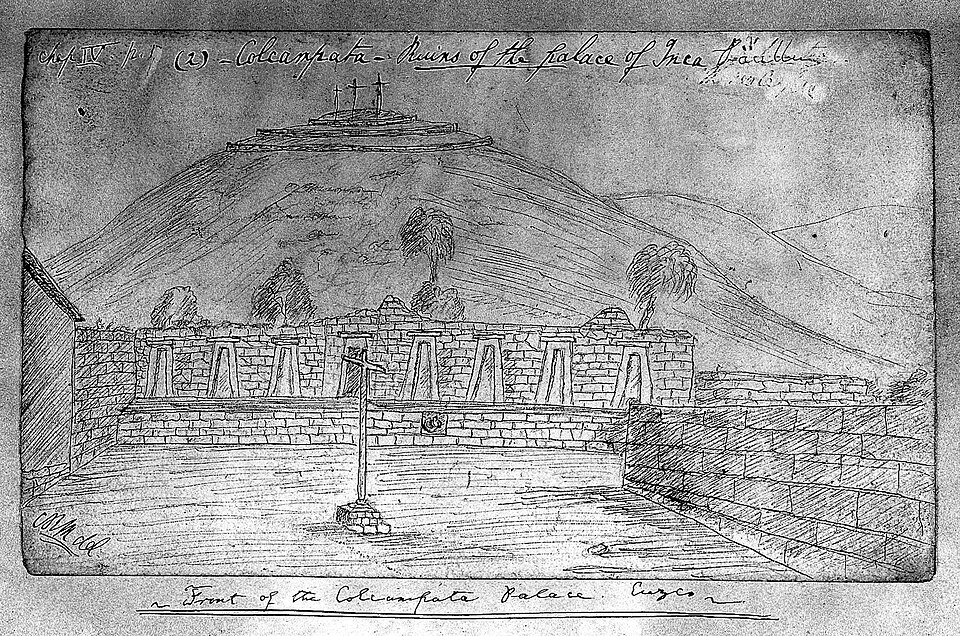 Chap IV p. 5 (2) - Colcampata - Ruins of the palace of Inca
C R M del
~ Front of the Colcampata Palace. Cuzco ~